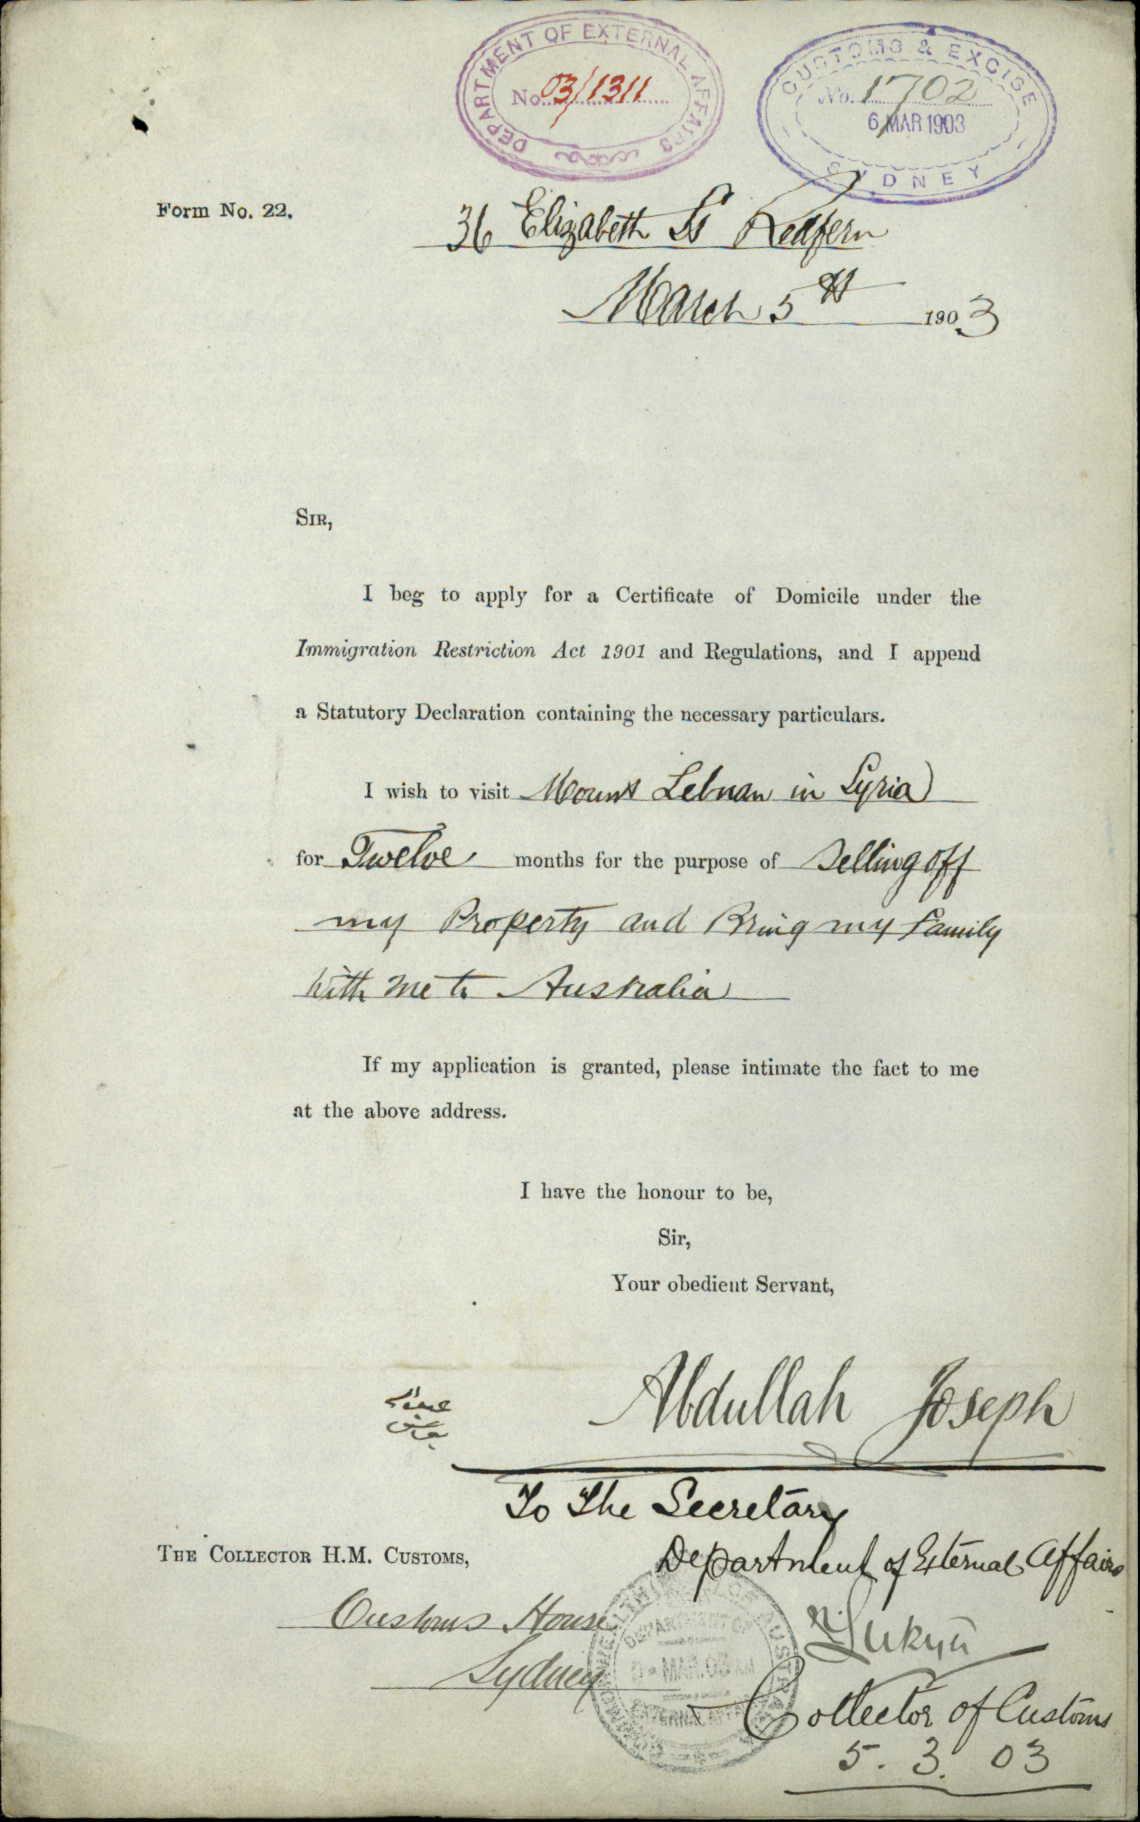 DEPARTMENT OF EXTERNAL AFFAIRS
No. 03/1311
CUSTOMS & EXCISE
No. 1702
6 MAR 1903
SYDNEY
Form No. 22.
36 Elizabeth St Redfern
March 5th 1903
SIR,
I beg to apply for a Certificate of Domicile under the
Immigration Restriction Act 1901 and Regulations, and I append
a Statutory Declaration containing the necessary particulars.
I wish to visit Mount Lebnan in Syria
for Twelve months for the purpose of Selling off
my Property and Bring my Family
with me to Australia
If my application is granted, please intimate the fact to me
at the above address.
I have the honour to be,
Sir,
Your obedient Servant,
Abdullah Joseph
عبدالله
يوسف
To The Secretary
Department of External Affairs
THE COLLECTOR H.M. CUSTOMS,
Customs House
Sydney
DEPARTMENT OF
MAR. 03 AM
Collector of Customs
5. 3. 03